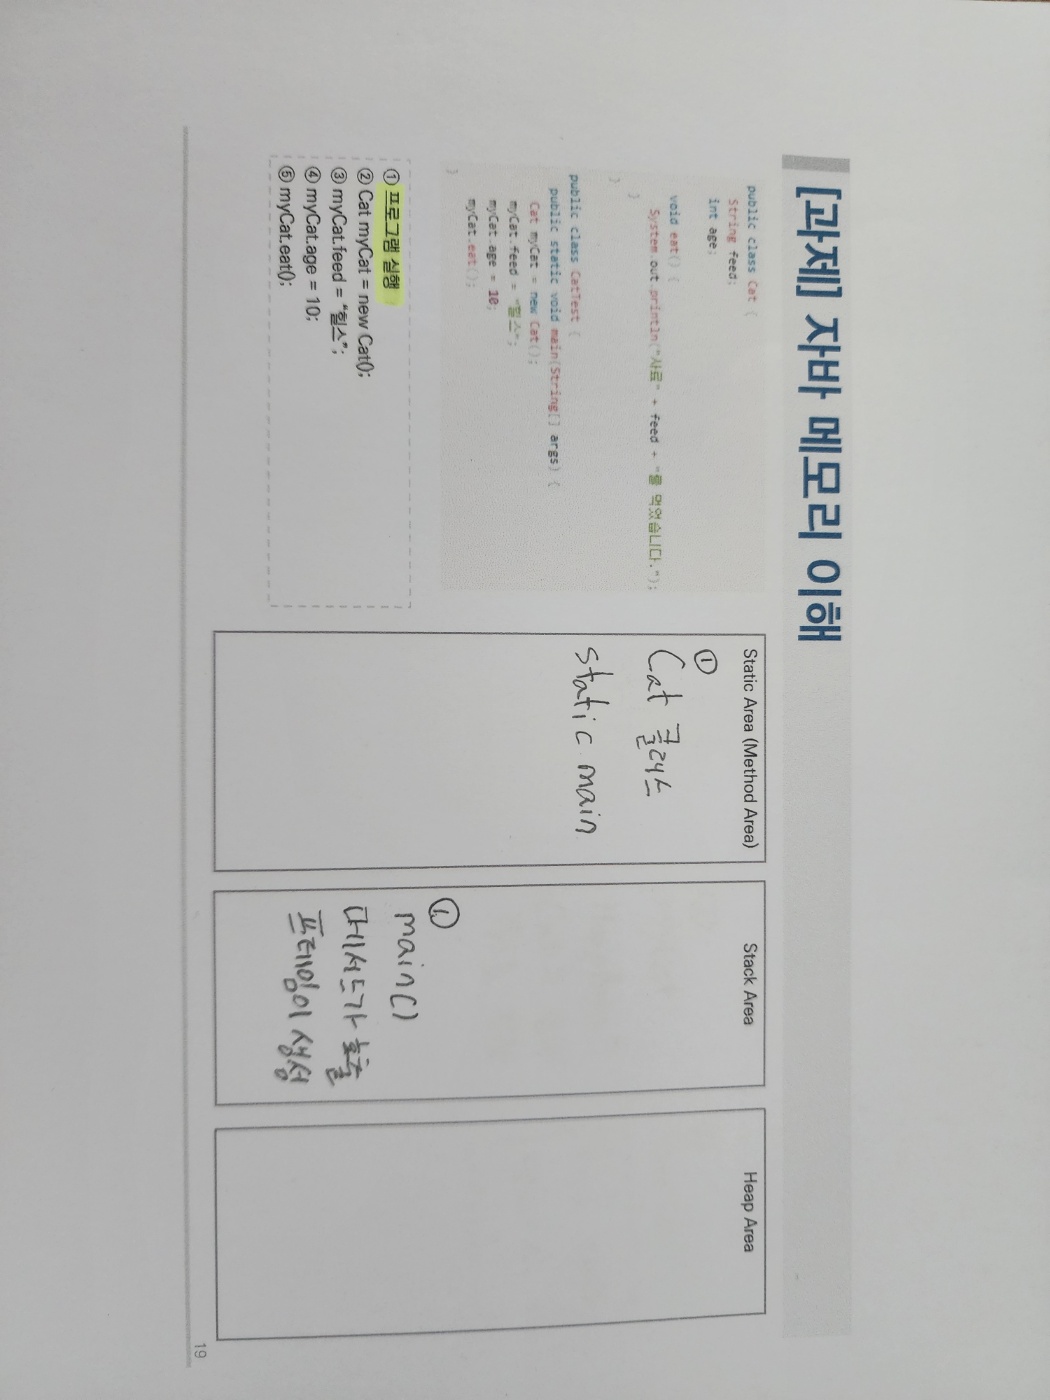 [과제] 자바 메모리 이해
public class Cat {
String feed;
int age;
void eat() {
System.out.println("사료" + feed + "를 먹었습니다.");
}
}
public class CatTest {
public static void main(String[] args) {
Cat myCat = new Cat();
myCat.feed = "힐스";
myCat.age = 10;
myCat.eat();
}
① 프로그램 실행
② Cat myCat = new Cat();
③ myCat.feed = “힐스”;
④ myCat.age = 10;
⑤ myCat.eat();
Static Area (Method Area)
①
Cat 클래스
static main
Stack Area
①
main()
메서드가 호출
프레임이 생성
Heap Area
19